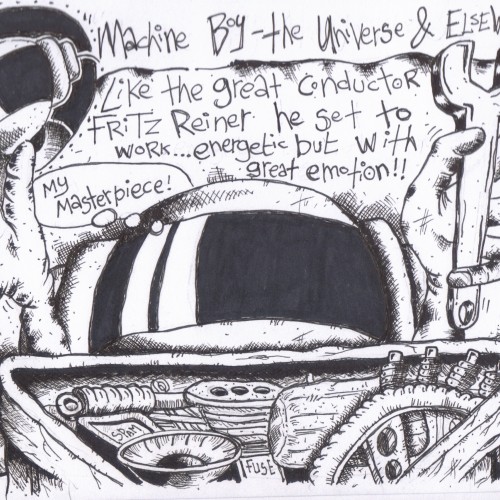 Machine Boy - the Universe & ELSEW
Like the great Conductor
FRiTZ Reiner he set to
work...energetic but with
great emotion!!
My
Masterpiece!
FUSE